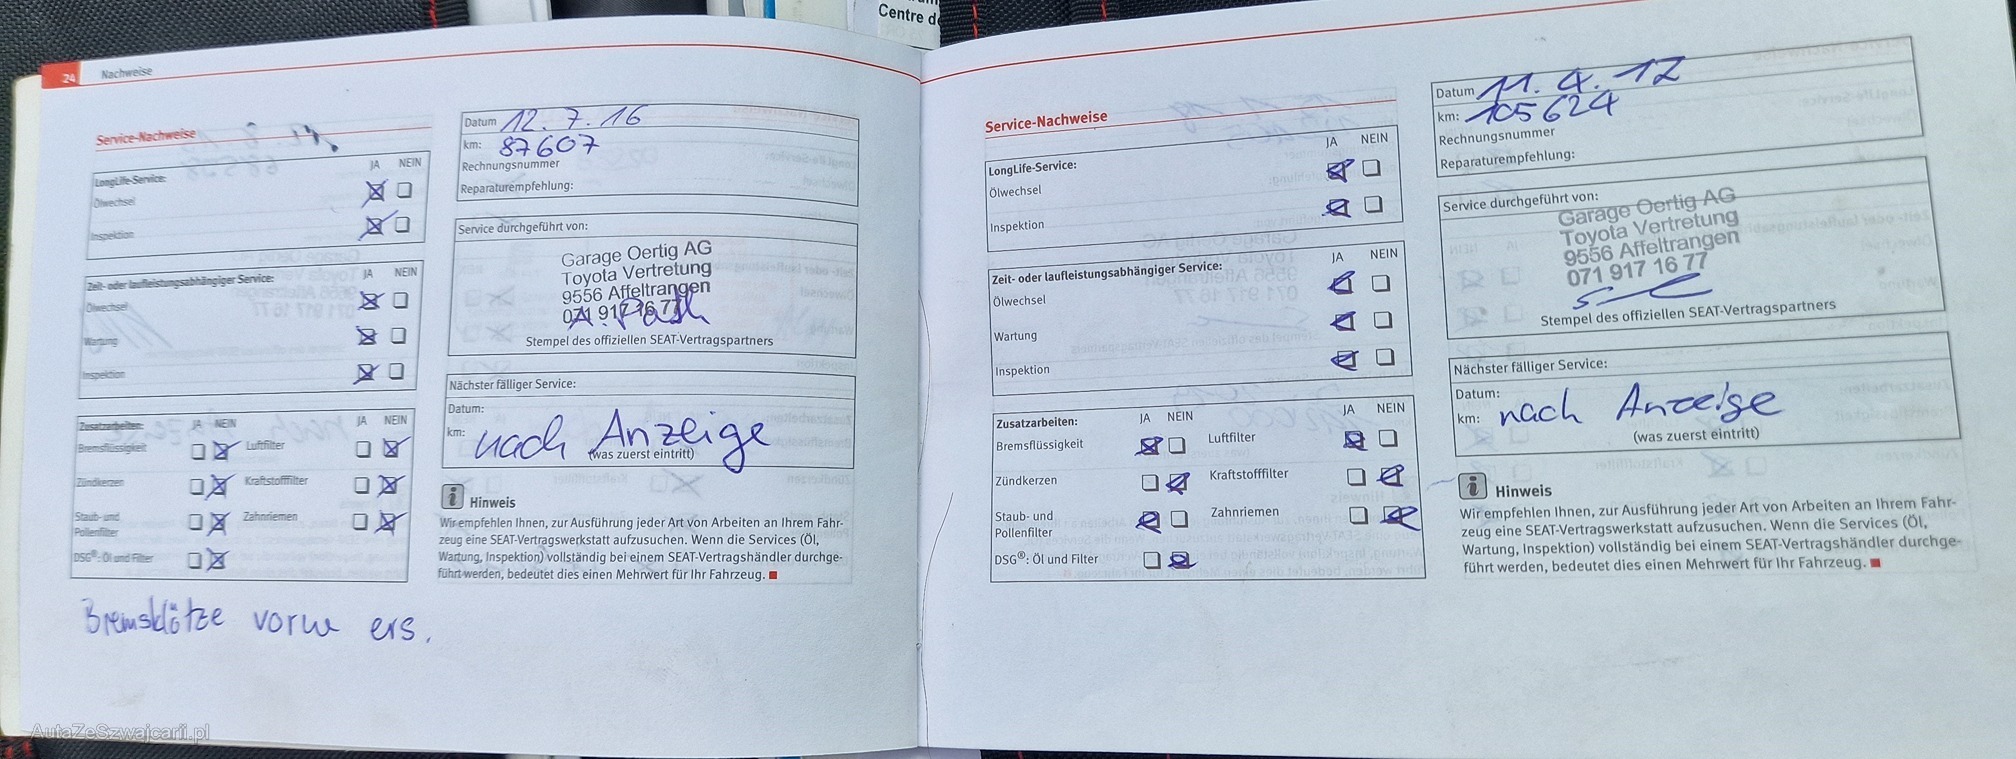 Centre de
24 Nachweise
Service-Nachweise
JA NEIN
LongLife-Service:
Ölwechsel
Inspektion
JA NEIN
Zeit- oder laufleistungsabhängiger Service:
Ölwechsel
Wartung
Inspektion
Zusatzarbeiten: JA NEIN JA NEIN
Bremsflüssigkeit Luftfilter
Zündkerzen Kraftstofffilter
Staub- und
Pollenfilter Zahnriemen
DSG®: Öl und Filter
Bremsklötze vorne ers.
Datum 12.7.16
km: 87607
Rechnungsnummer
Reparaturempfehlung:
Service durchgeführt von:
Garage Oertig AG
Toyota Vertretung
9556 Affeltrangen
071 917 16 77
Stempel des offiziellen SEAT-Vertragspartners
Nächster fälliger Service:
Datum:
km: nach Anzeige
(was zuerst eintritt)
Hinweis
Wir empfehlen Ihnen, zur Ausführung jeder Art von Arbeiten an Ihrem Fahr-
zeug eine SEAT-Vertragswerkstatt aufzusuchen. Wenn die Services (Öl,
Wartung, Inspektion) vollständig bei einem SEAT-Vertragshändler durchge-
führt werden, bedeutet dies einen Mehrwert für Ihr Fahrzeug.
Service-Nachweise
JA NEIN
LongLife-Service:
Ölwechsel
Inspektion
JA NEIN
Zeit- oder laufleistungsabhängiger Service:
Ölwechsel
Wartung
Inspektion
Zusatzarbeiten: JA NEIN JA NEIN
Bremsflüssigkeit Luftfilter
Zündkerzen Kraftstofffilter
Staub- und
Pollenfilter Zahnriemen
DSG®: Öl und Filter
Datum 11.4.17
km: 105624
Rechnungsnummer
Reparaturempfehlung:
Service durchgeführt von:
Garage Oertig AG
Toyota Vertretung
9556 Affeltrangen
071 917 16 77
Stempel des offiziellen SEAT-Vertragspartners
Nächster fälliger Service:
Datum:
km: nach Anzeige
(was zuerst eintritt)
Hinweis
Wir empfehlen Ihnen, zur Ausführung jeder Art von Arbeiten an Ihrem Fahr-
zeug eine SEAT-Vertragswerkstatt aufzusuchen. Wenn die Services (Öl,
Wartung, Inspektion) vollständig bei einem SEAT-Vertragshändler durchge-
führt werden, bedeutet dies einen Mehrwert für Ihr Fahrzeug.
AutaZeSzwajcarii.pl